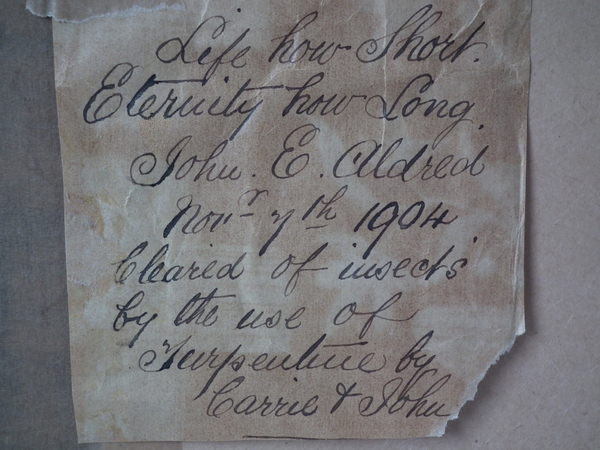 Life how Short.
Eternity how Long.
John. E. Aldred
Novr 7th 1904
Cleared of insects
by the use of
Turpentine by
Carrie & John